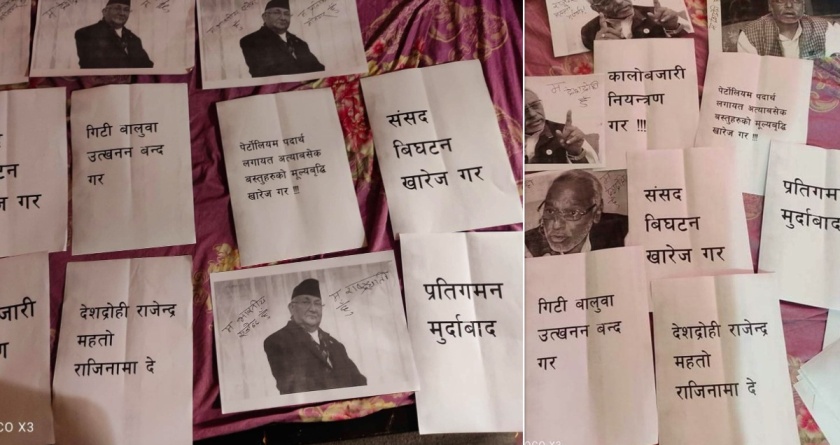 गिटी बालुवा
उत्खनन बन्द
गर
पेर्टोलियम पदार्थ
लगायत अत्याबसेक
बस्तुहरुको मूल्यबृद्धि
खारेज गर !!!
संसद
बिघटन
खारेज गर
देशद्रोही राजेन्द्र
महतो
राजिनामा दे
प्रतिगमन
मुर्दाबाद
कालोबजारी
नियन्त्रण
गर !!!
पेर्टोलियम पदार्थ
लगायत अत्याबसेक
बस्तुहरुको मूल्यबृद्धि
खारेज गर !!!
संसद
बिघटन
खारेज गर
प्रतिगम
मुर्दाबाद
गिटी बालुवा
उत्खनन बन्द
गर
देशद्रोही राजेन्द्र
महतो
राजिनामा दे
CO X3
OCO X3